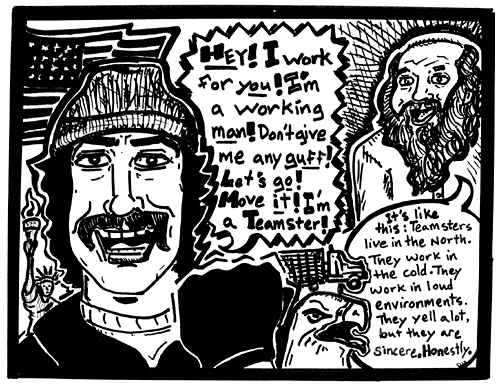 HEY! I work
for you! I'm
a working
man! Don't give
me any guff!
Let's go!
Move it! I'm
a Teamster!
It's like
this: Teamsters
live in the North.
They work in
the cold. They
work in loud
environments.
They yell alot,
but they are
sincere. Honestly.